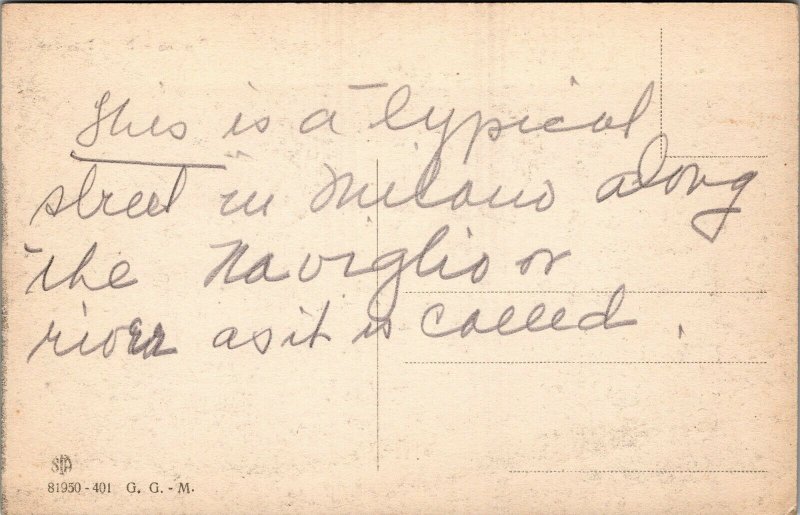 This is a typical
street in Milano along
the Naviglio or
river as it is called.
81950-401 G. G. - M.